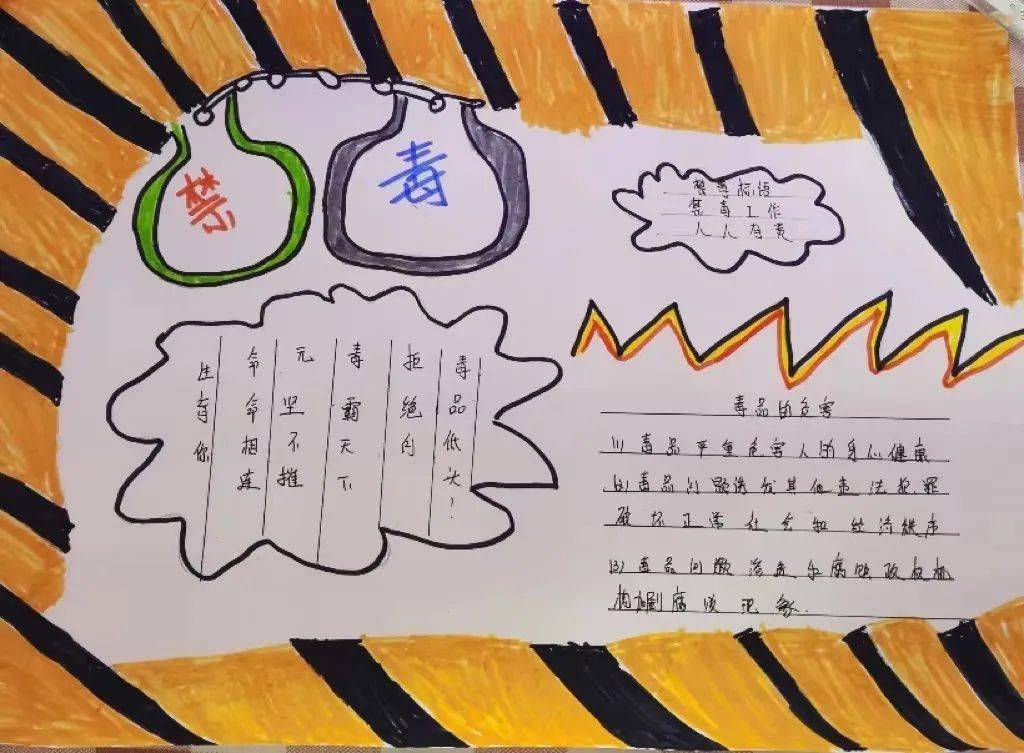 禁
毒
禁毒标语
禁毒工作
人人有责
生有你
命命相连
元坚不摧
毒霸天下
拒绝的
毒品低头!
毒品的危害
(1)毒品严重危害人的身心健康
(2)毒品问题诱发其他违法犯罪
破坏正常社会和经济秩序
(3)毒品问题渗透和腐蚀政权机
构加剧腐败现象.